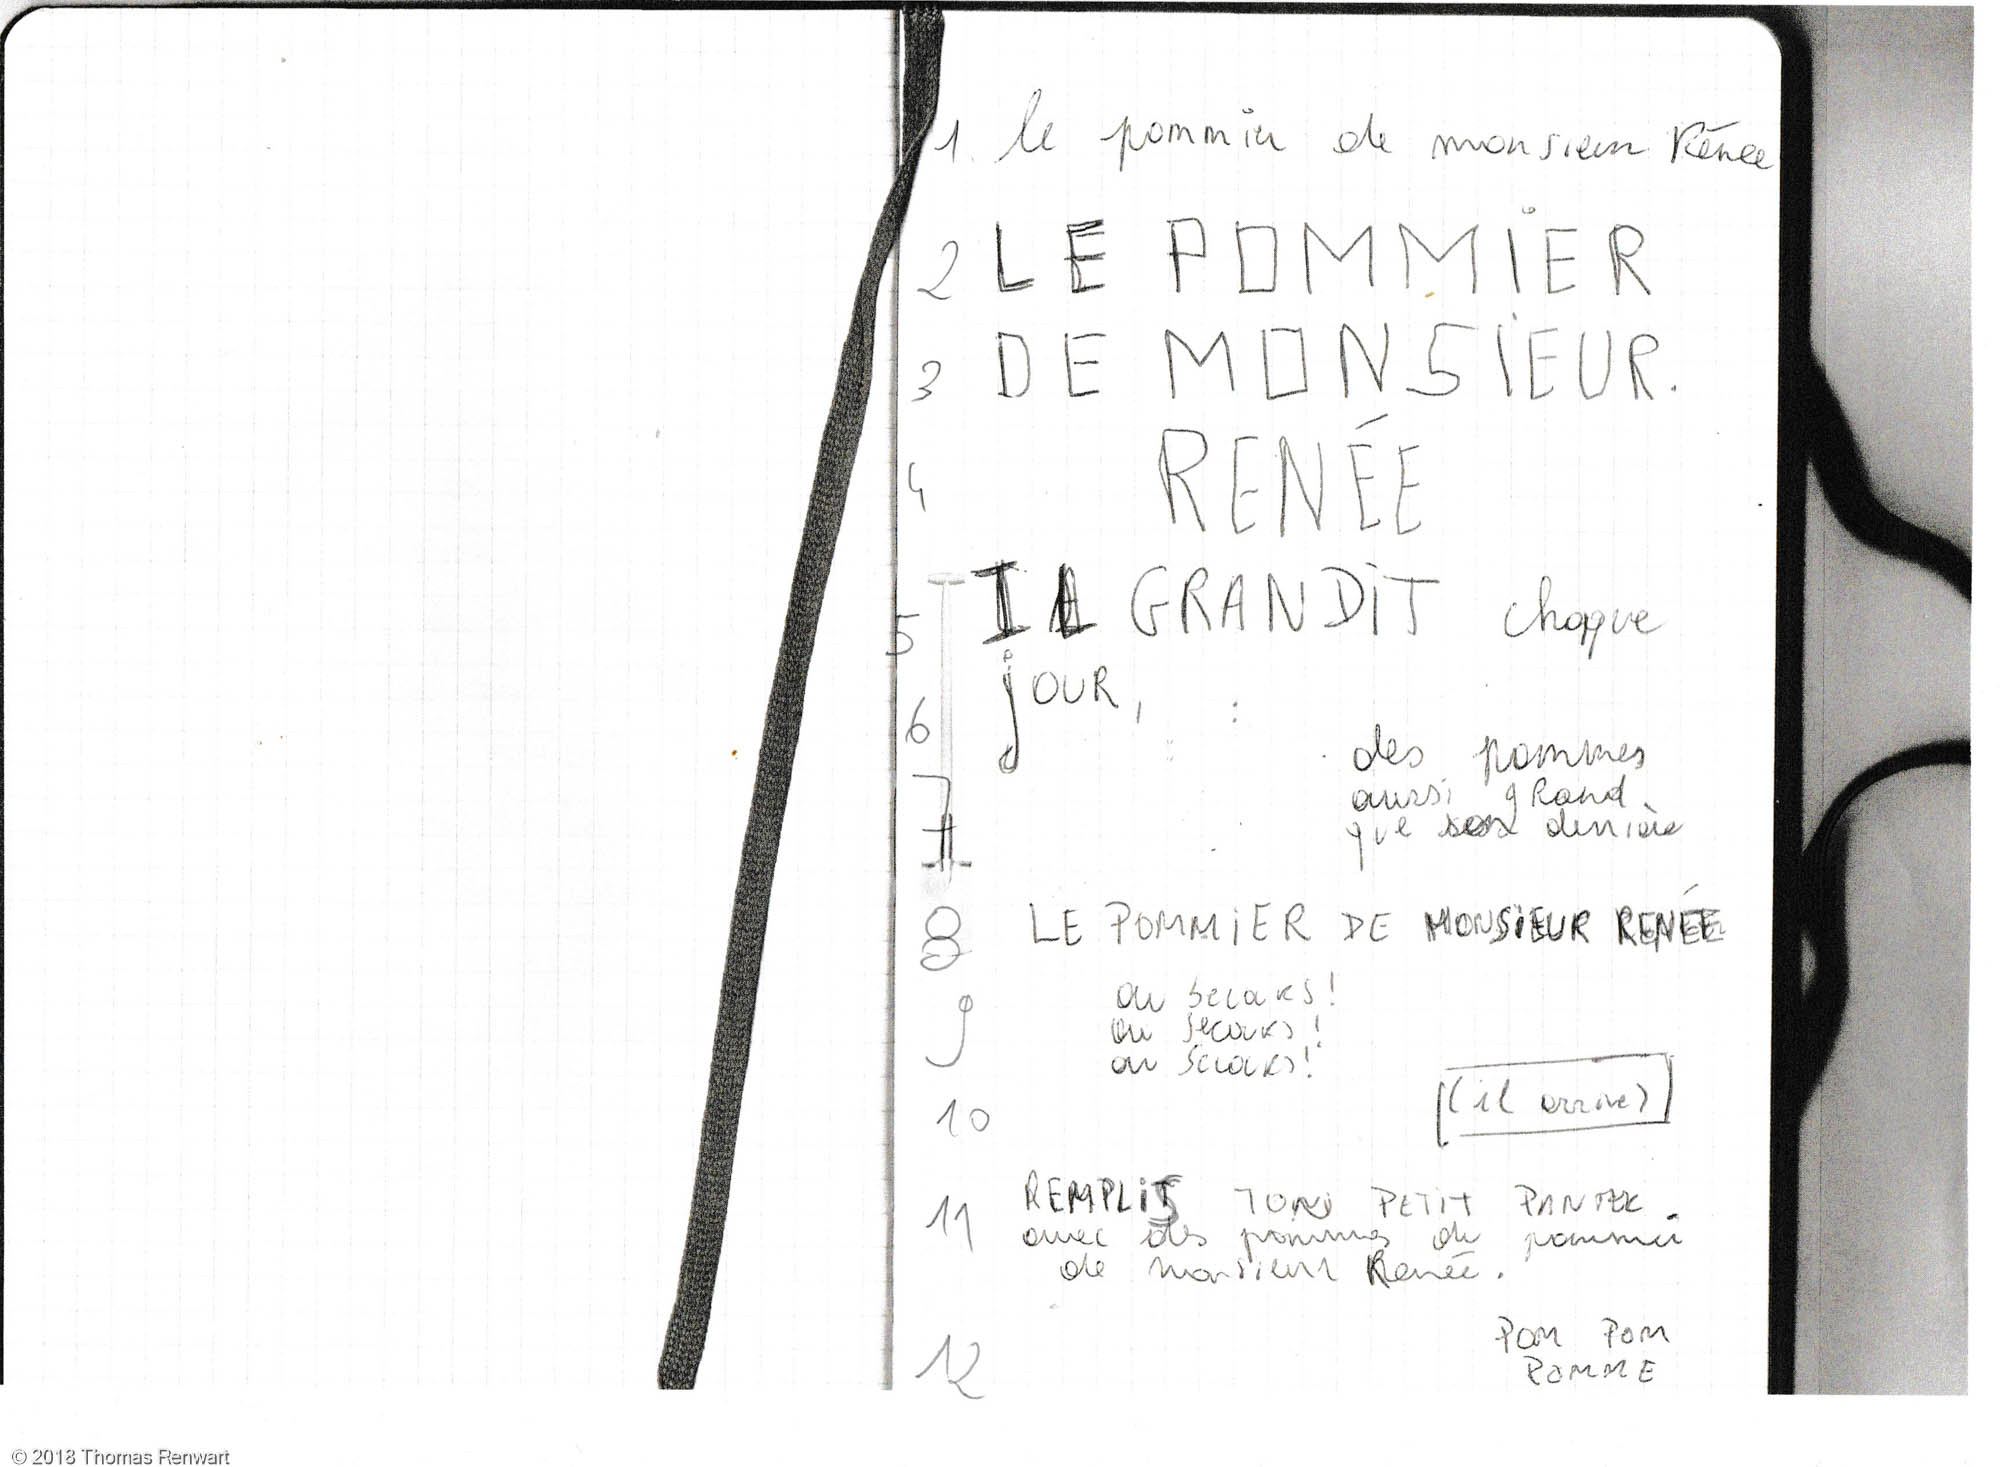 1. le pommier de monsieur Rénee
2 LE POMMIER
3 DE MONSIEUR.
4 RENÉE
5 IL GRANDIT chaque
6 jOUR,
des pommes
aussi gRand
7 que derrière
8 LE POMMIER DE MONSIEUR RENÉE
9 au secours!
au secours!
au secours!
10 (il arrive)
11 REMPLIS TON PETIT PANIER
avec des pommes du pommier
de monsieur Renée.
12 POM POM
POMME
© 2018 Thomas Renwart